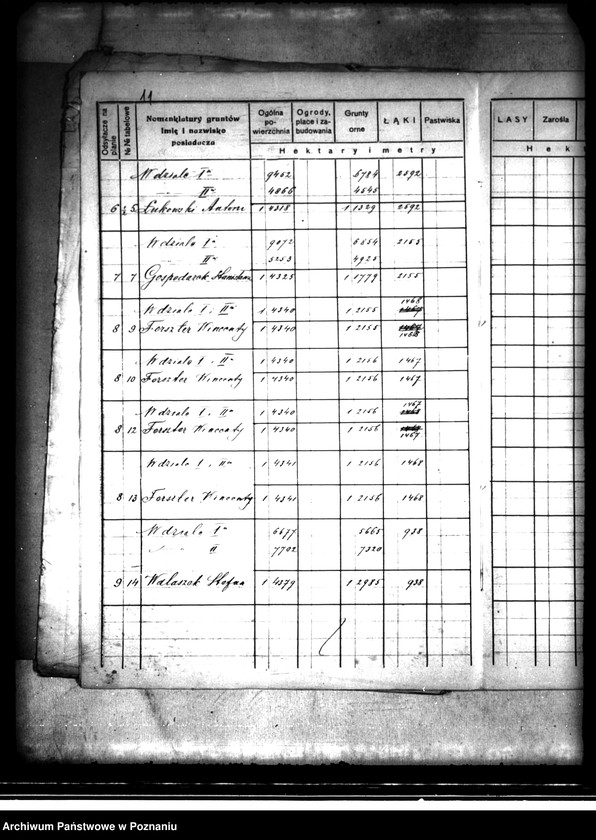 11
Odsyłacze na planie
№№ tabelowe
Nomenklatury gruntów imię i nazwisko posiadacza
Ogólna powierzchnia
Ogrody, place i zabudowania
Grunty orne
ŁĄKI
Pastwiska
LASY
Zarośla
Hektary i metry
Hekt
W dziale Iм 9452 6784 2592
IIм 4866 4545
6 5 Łukowski Antoni 1 4318 1 1329 2592
W dziale Iм 9072 6854 2155
IIм 5253 4925
7 7 Gospodarek Stanisław 1 4325 1 1779 2155
1468
W dziale I i IIм 1 4340 1 2155
8 9 Forszter Wincenty 1 4340 1 2155
1468
W dziale I i II 1 4340 1 2156 1467
8 10 Forszter Wincenty 1 4340 1 2156 1467
1467
W dziale I i IIм 1 4340 1 2156
8 12 Forszter Wincenty 1 4340 1 2156
1467
W dziale I i IIм 1 4341 1 2156 1468
8 13 Forszter Wincenty 1 4341 1 2156 1468
W dziale Iм 6677 5665 938
II 7702 7320
9 14 Walaszek Stefan 1 4379 1 2985 938
Archiwum Państwowe w Poznaniu